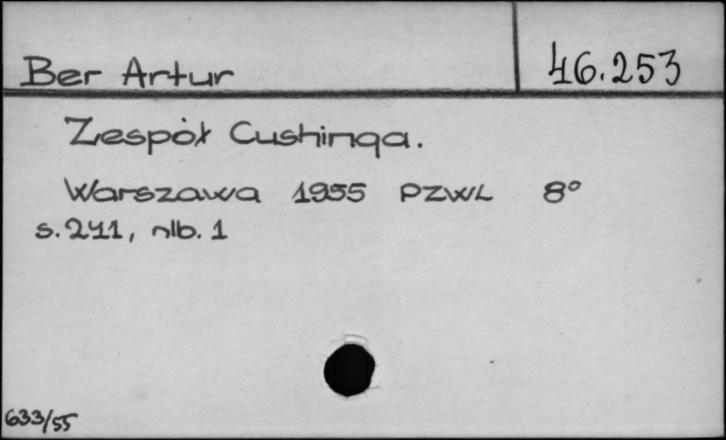 Ber Artur 46.253
Zespół Cushinga.
Warszawa 1955 PZWL 8°
s. 241, nlb. 1
633/55